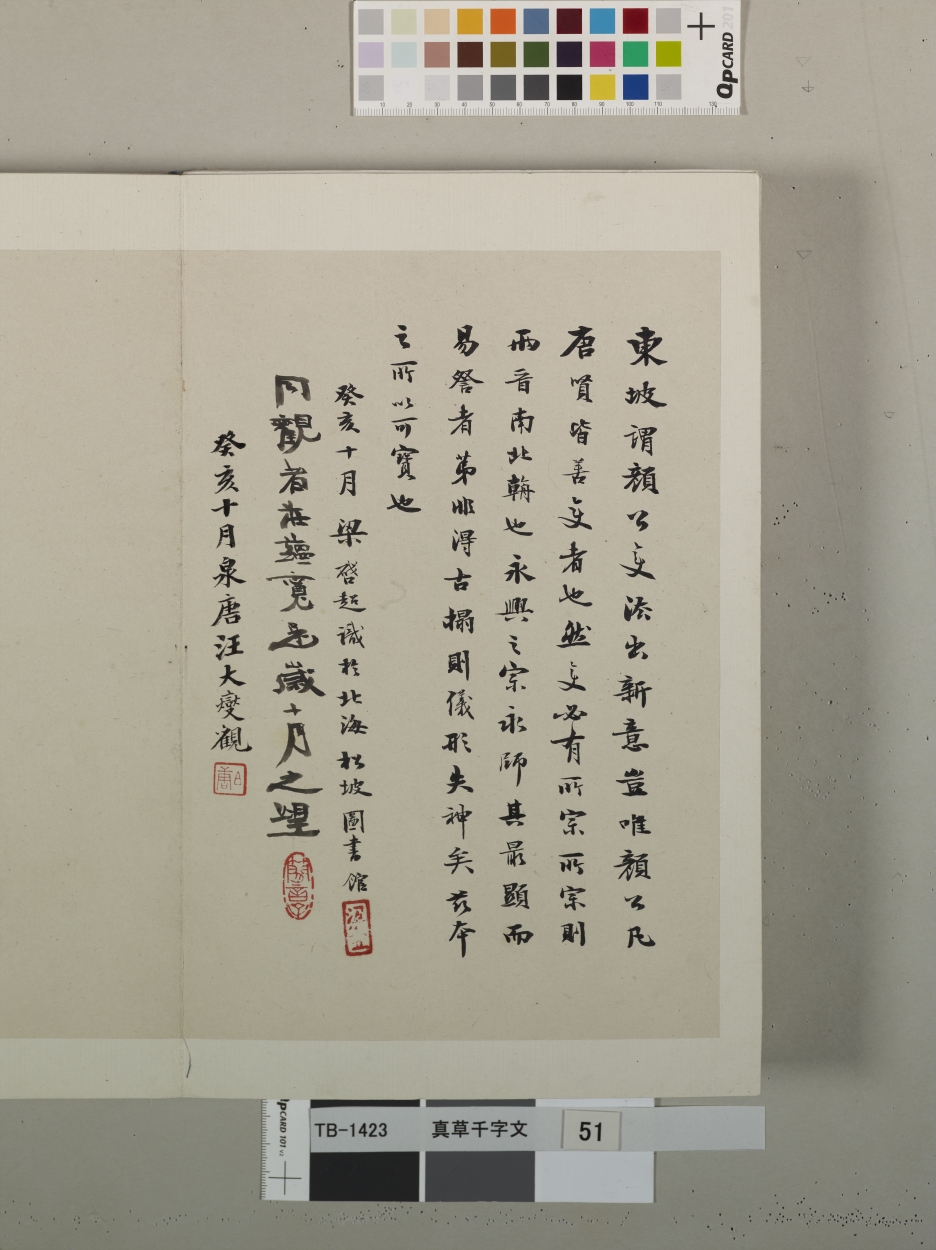 東坡謂顏公變法出新意豈唯顏公凡
唐賢皆善變者也然變必有所宗所宗則
兩晉南北翰也永興之宗永師其最顯而
易詧者第非得古搨則儀形失神矣茲本
之所以可寶也
癸亥十月 梁啓超識於北海松坡圖書館
同觀者莊蘊寬是歲十月之望
癸亥十月泉唐汪大燮觀
QpCARD 201
10 20 30 40 50 60 70 80 90 100 110 130
QpCARD 101 v2
TB-1423 真草千字文 51